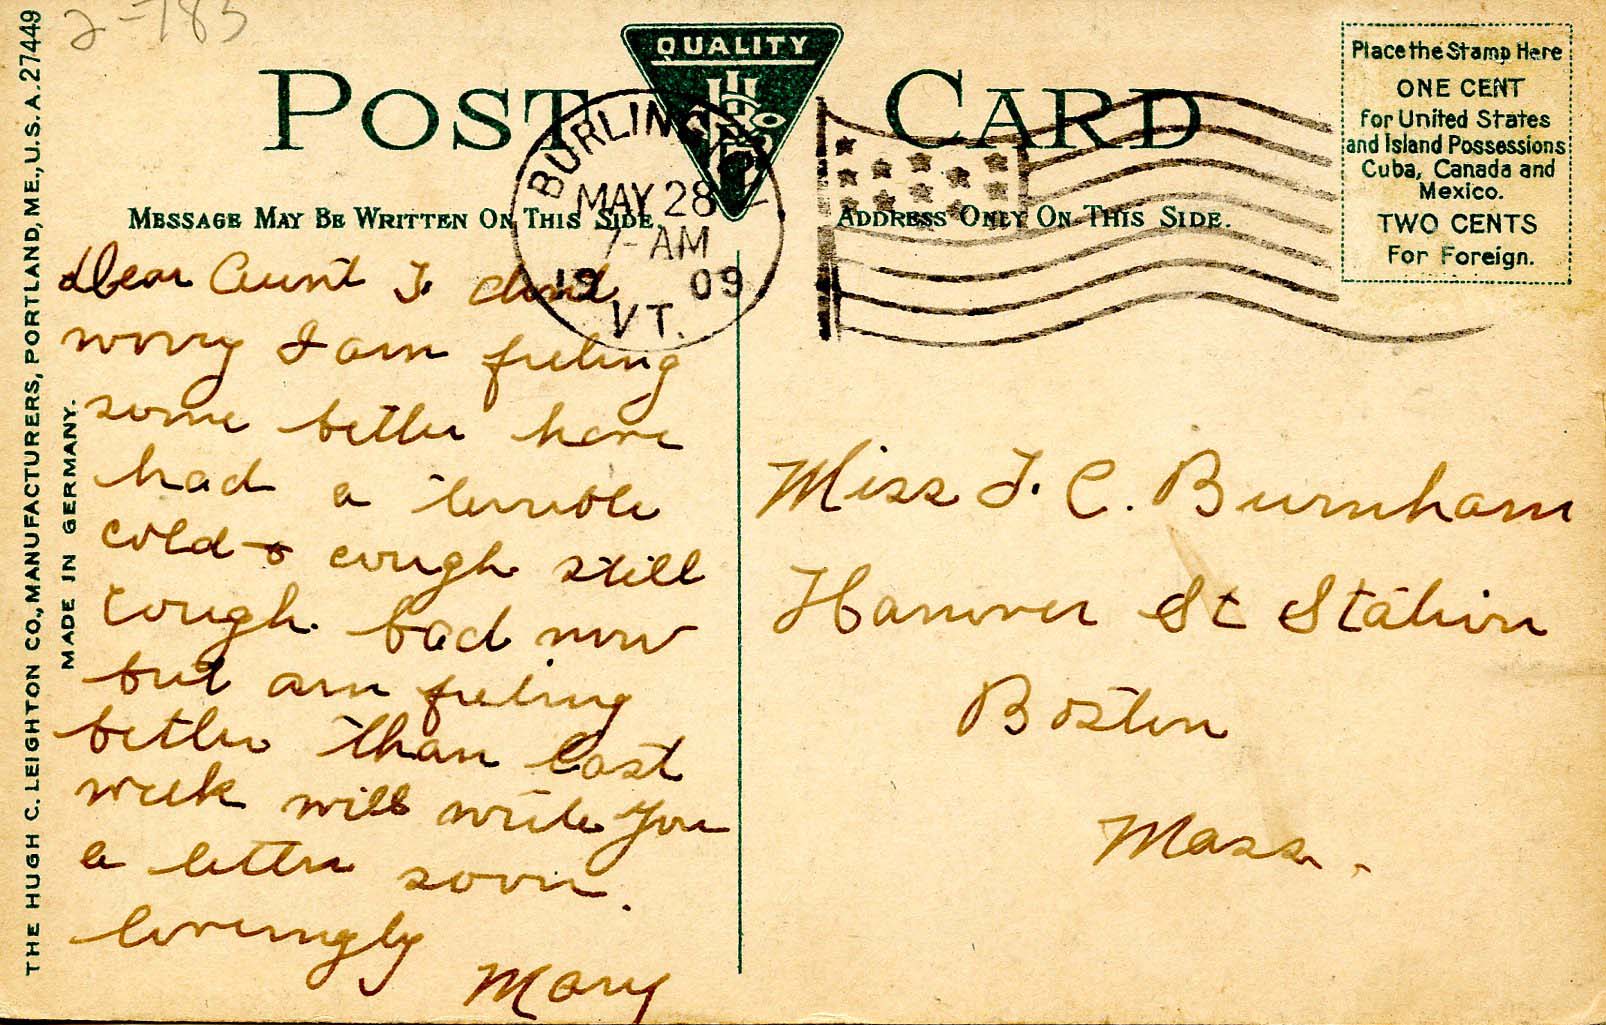 2-783
QUALITY
POST CARD
BURLING
MAY 28
7-AM
19 09
VT.
Place the Stamp Here
ONE CENT
for United States
and Island Possessions
Cuba, Canada and
Mexico.
TWO CENTS
For Foreign.
MESSAGE MAY BE WRITTEN ON THIS SIDE.
ADDRESS ONLY ON THIS SIDE.
THE HUGH C. LEIGHTON CO., MANUFACTURERS, PORTLAND, ME., U.S.A. 27449
MADE IN GERMANY.
Dear Aunt T. dont
worry I am feeling
some better have
had a terrible
cold & cough still
cough bad now
but am feeling
better than last
week will write you
a letter soon.
lovingly
Mary
Miss T. C. Burnham
Hanover St Station
Boston
Mass.